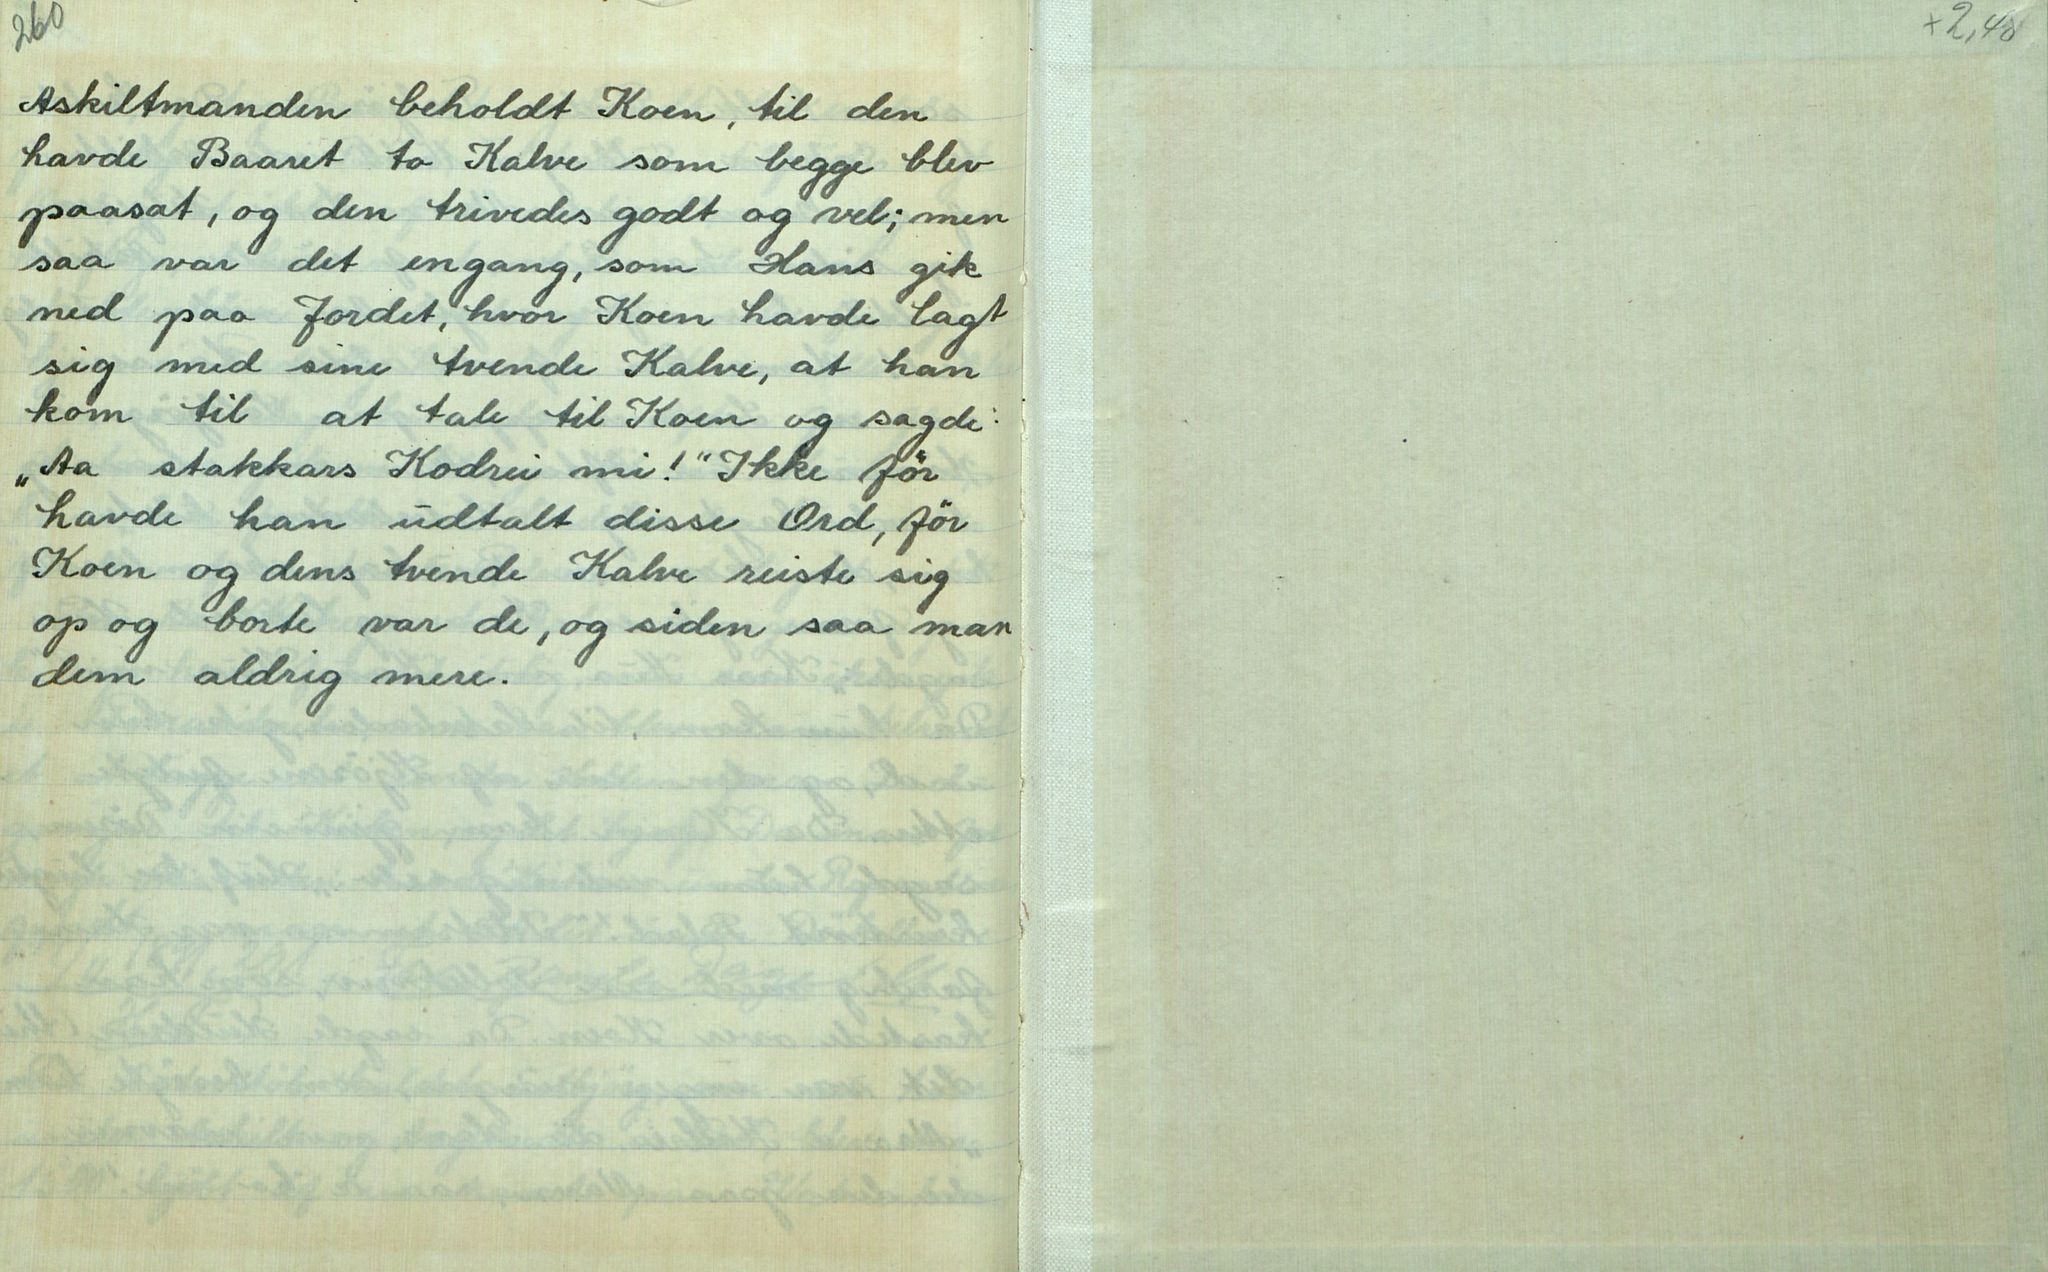 260
Askiltmanden beholdt Koen, til den
havde Baaret to Kalve som begge blev
paasat, og den trivedes godt og vel; men
saa var det engang, som Hans gik
ned paa Jordet, hvor Koen havde lagt
sig med sine tvende Kalve, at han
kom til at tale til Koen og sagde:
„Aa stakkars Kodrei mi!" Ikke för
havde han udtalt disse Ord, för
Koen og dens tvende Kalve reiste sig
op og borte var de, og siden saa man
dem aldrig mere.
+2,40